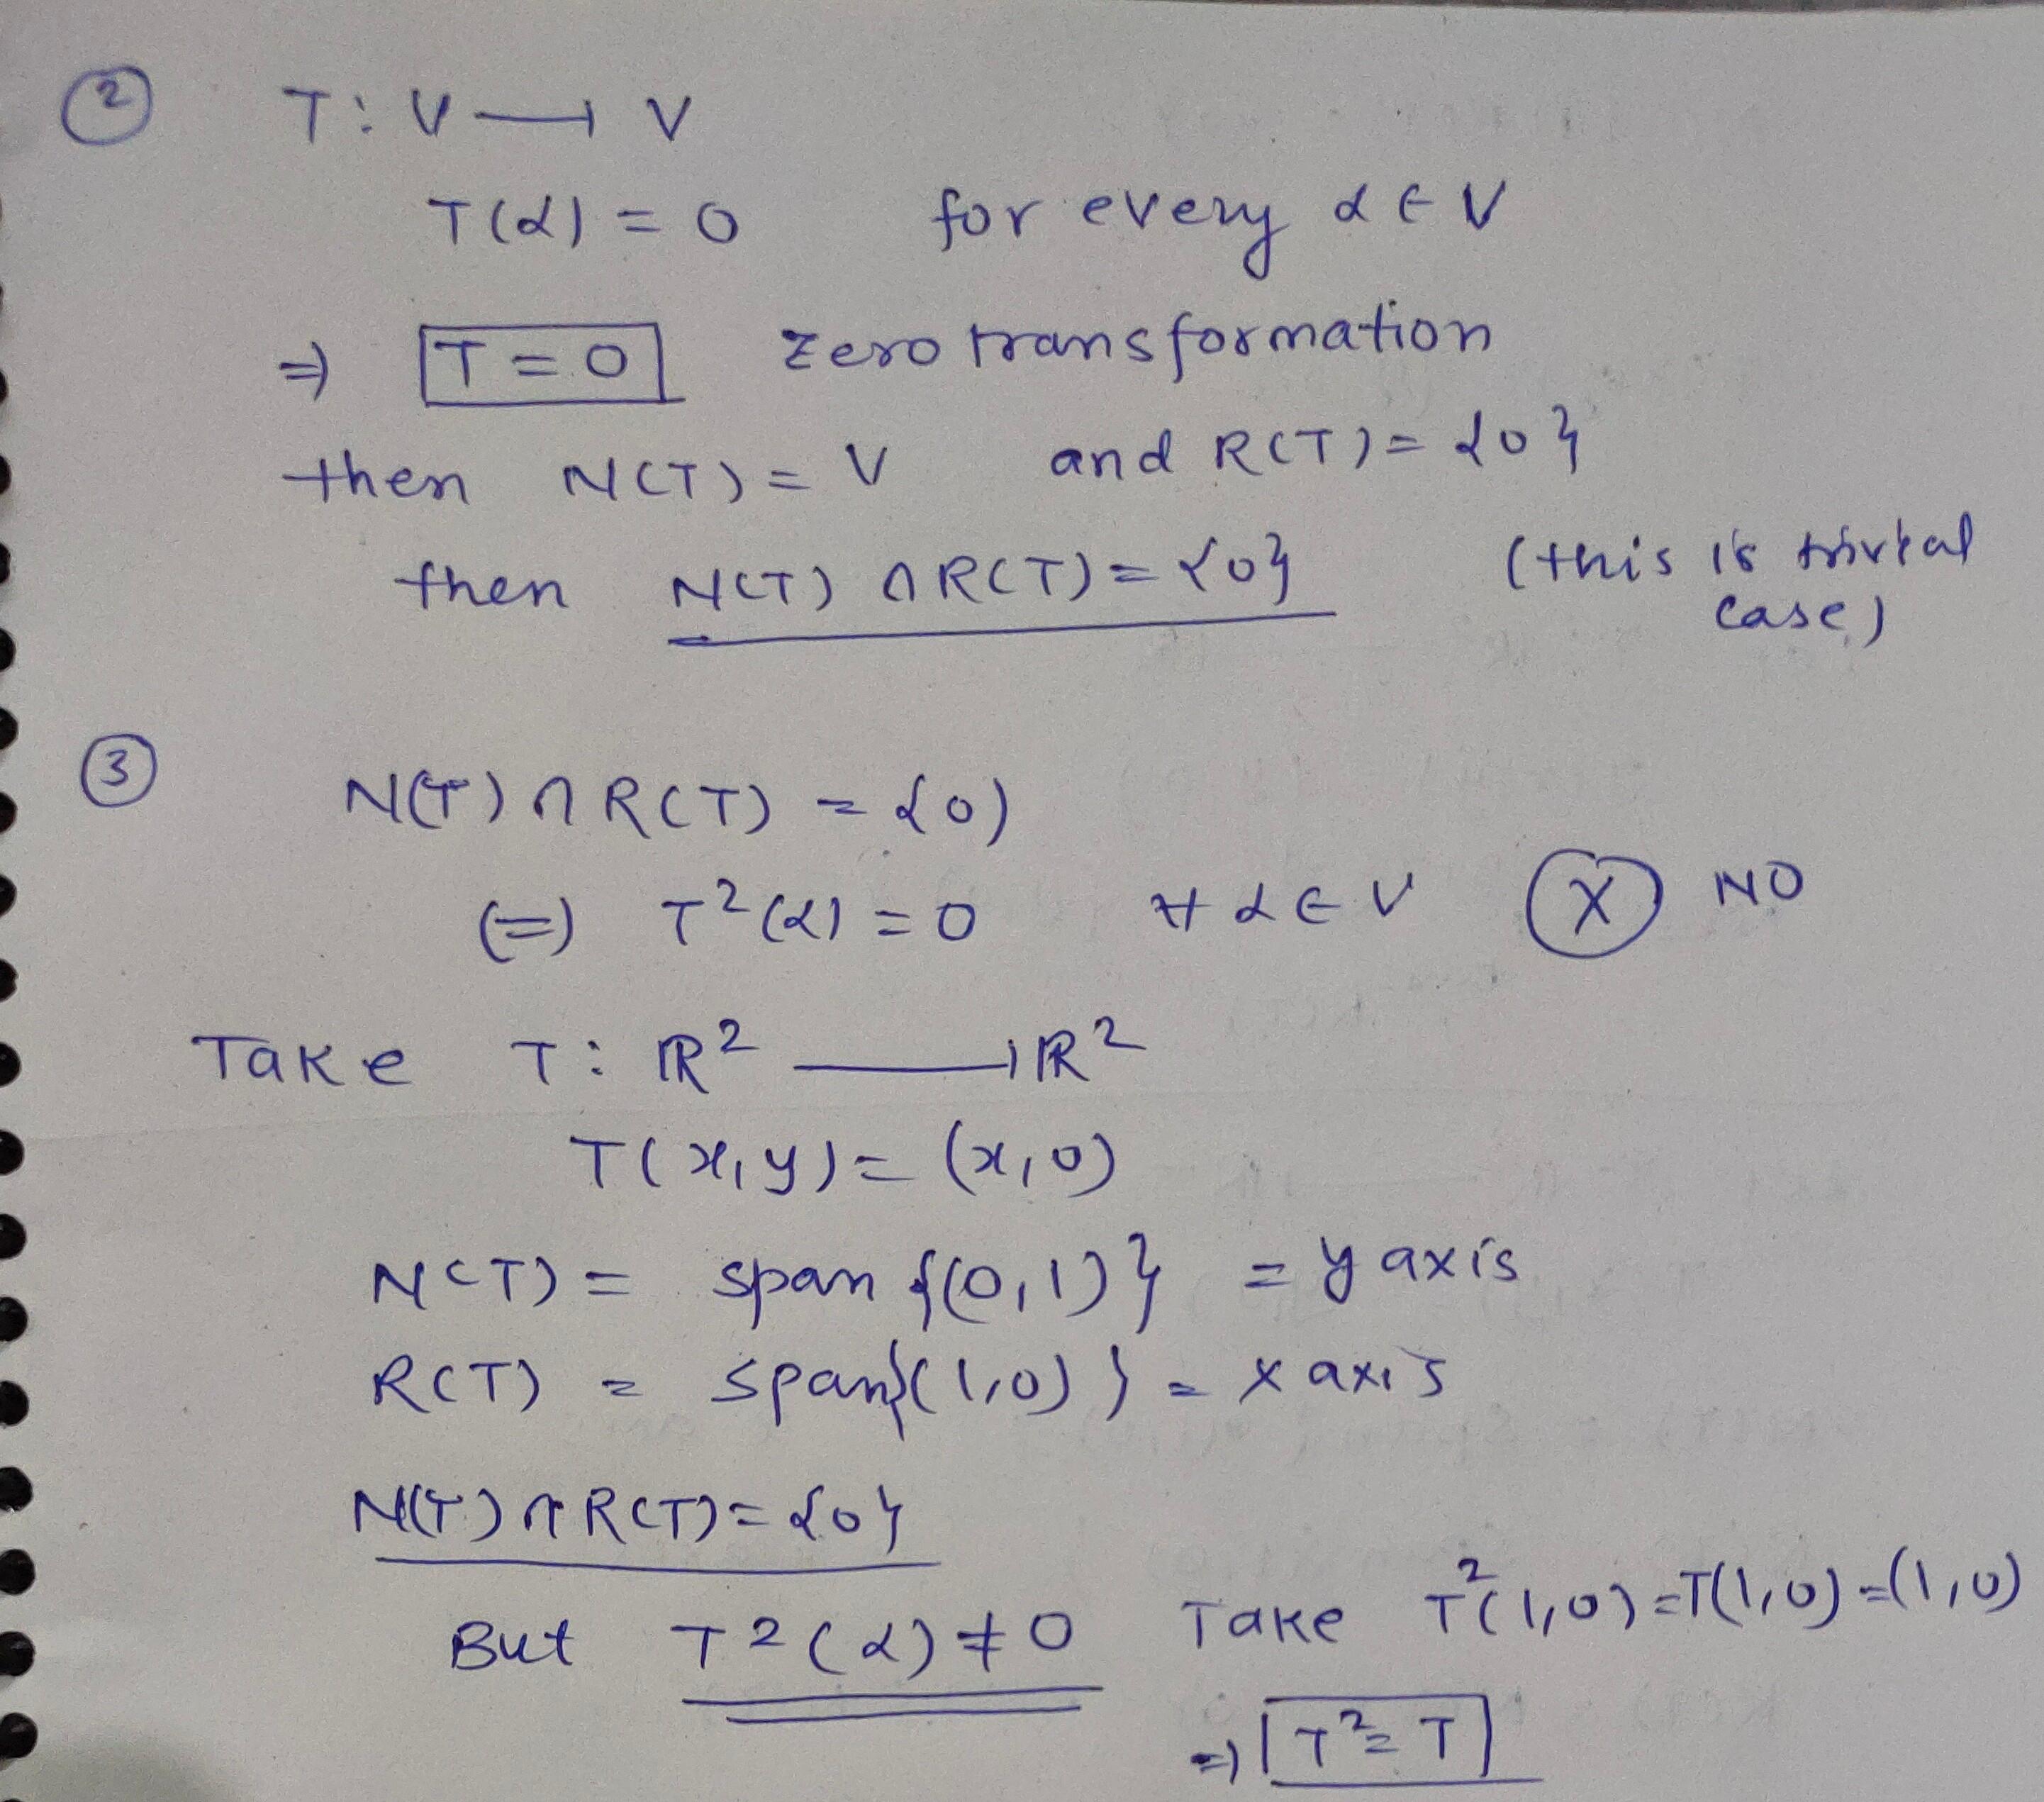 ② T: V → V
T(α) = 0 for every α ∈ V
⇒ T = 0 zero transformation
then N(T) = V and R(T) = {0}
then N(T) ∩ R(T) = {0} (this is trivial case)
③ N(T) ∩ R(T) = {0)
⇔ T²(α) = 0 ∀ α ∈ V Ⓧ NO
Take T: ℝ² → ℝ²
T(x, y) = (x, 0)
N(T) = span {(0, 1)} = y axis
R(T) = span{(1, 0)} = x axis
N(T) ∩ R(T) = {0}
But T²(α) ≠ 0 Take T²(1, 0) = T(1, 0) = (1, 0)
⇒ T² = T